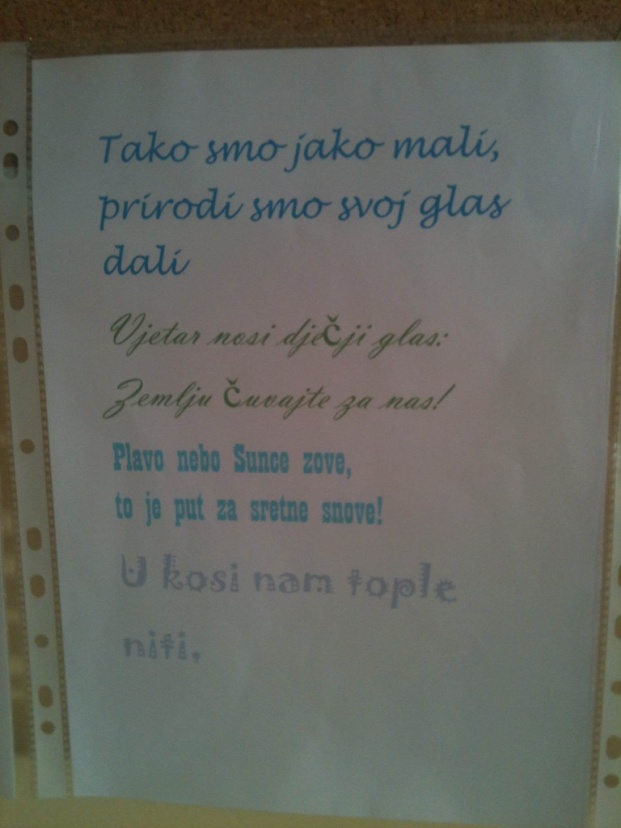 Tako smo jako mali,
prirodi smo svoj glas
dali
Vjetar nosi dječji glas:
Zemlju čuvajte za nas!
Plavo nebo Sunce zove,
to je put za sretne snove!
U kosi nam tople
niti,